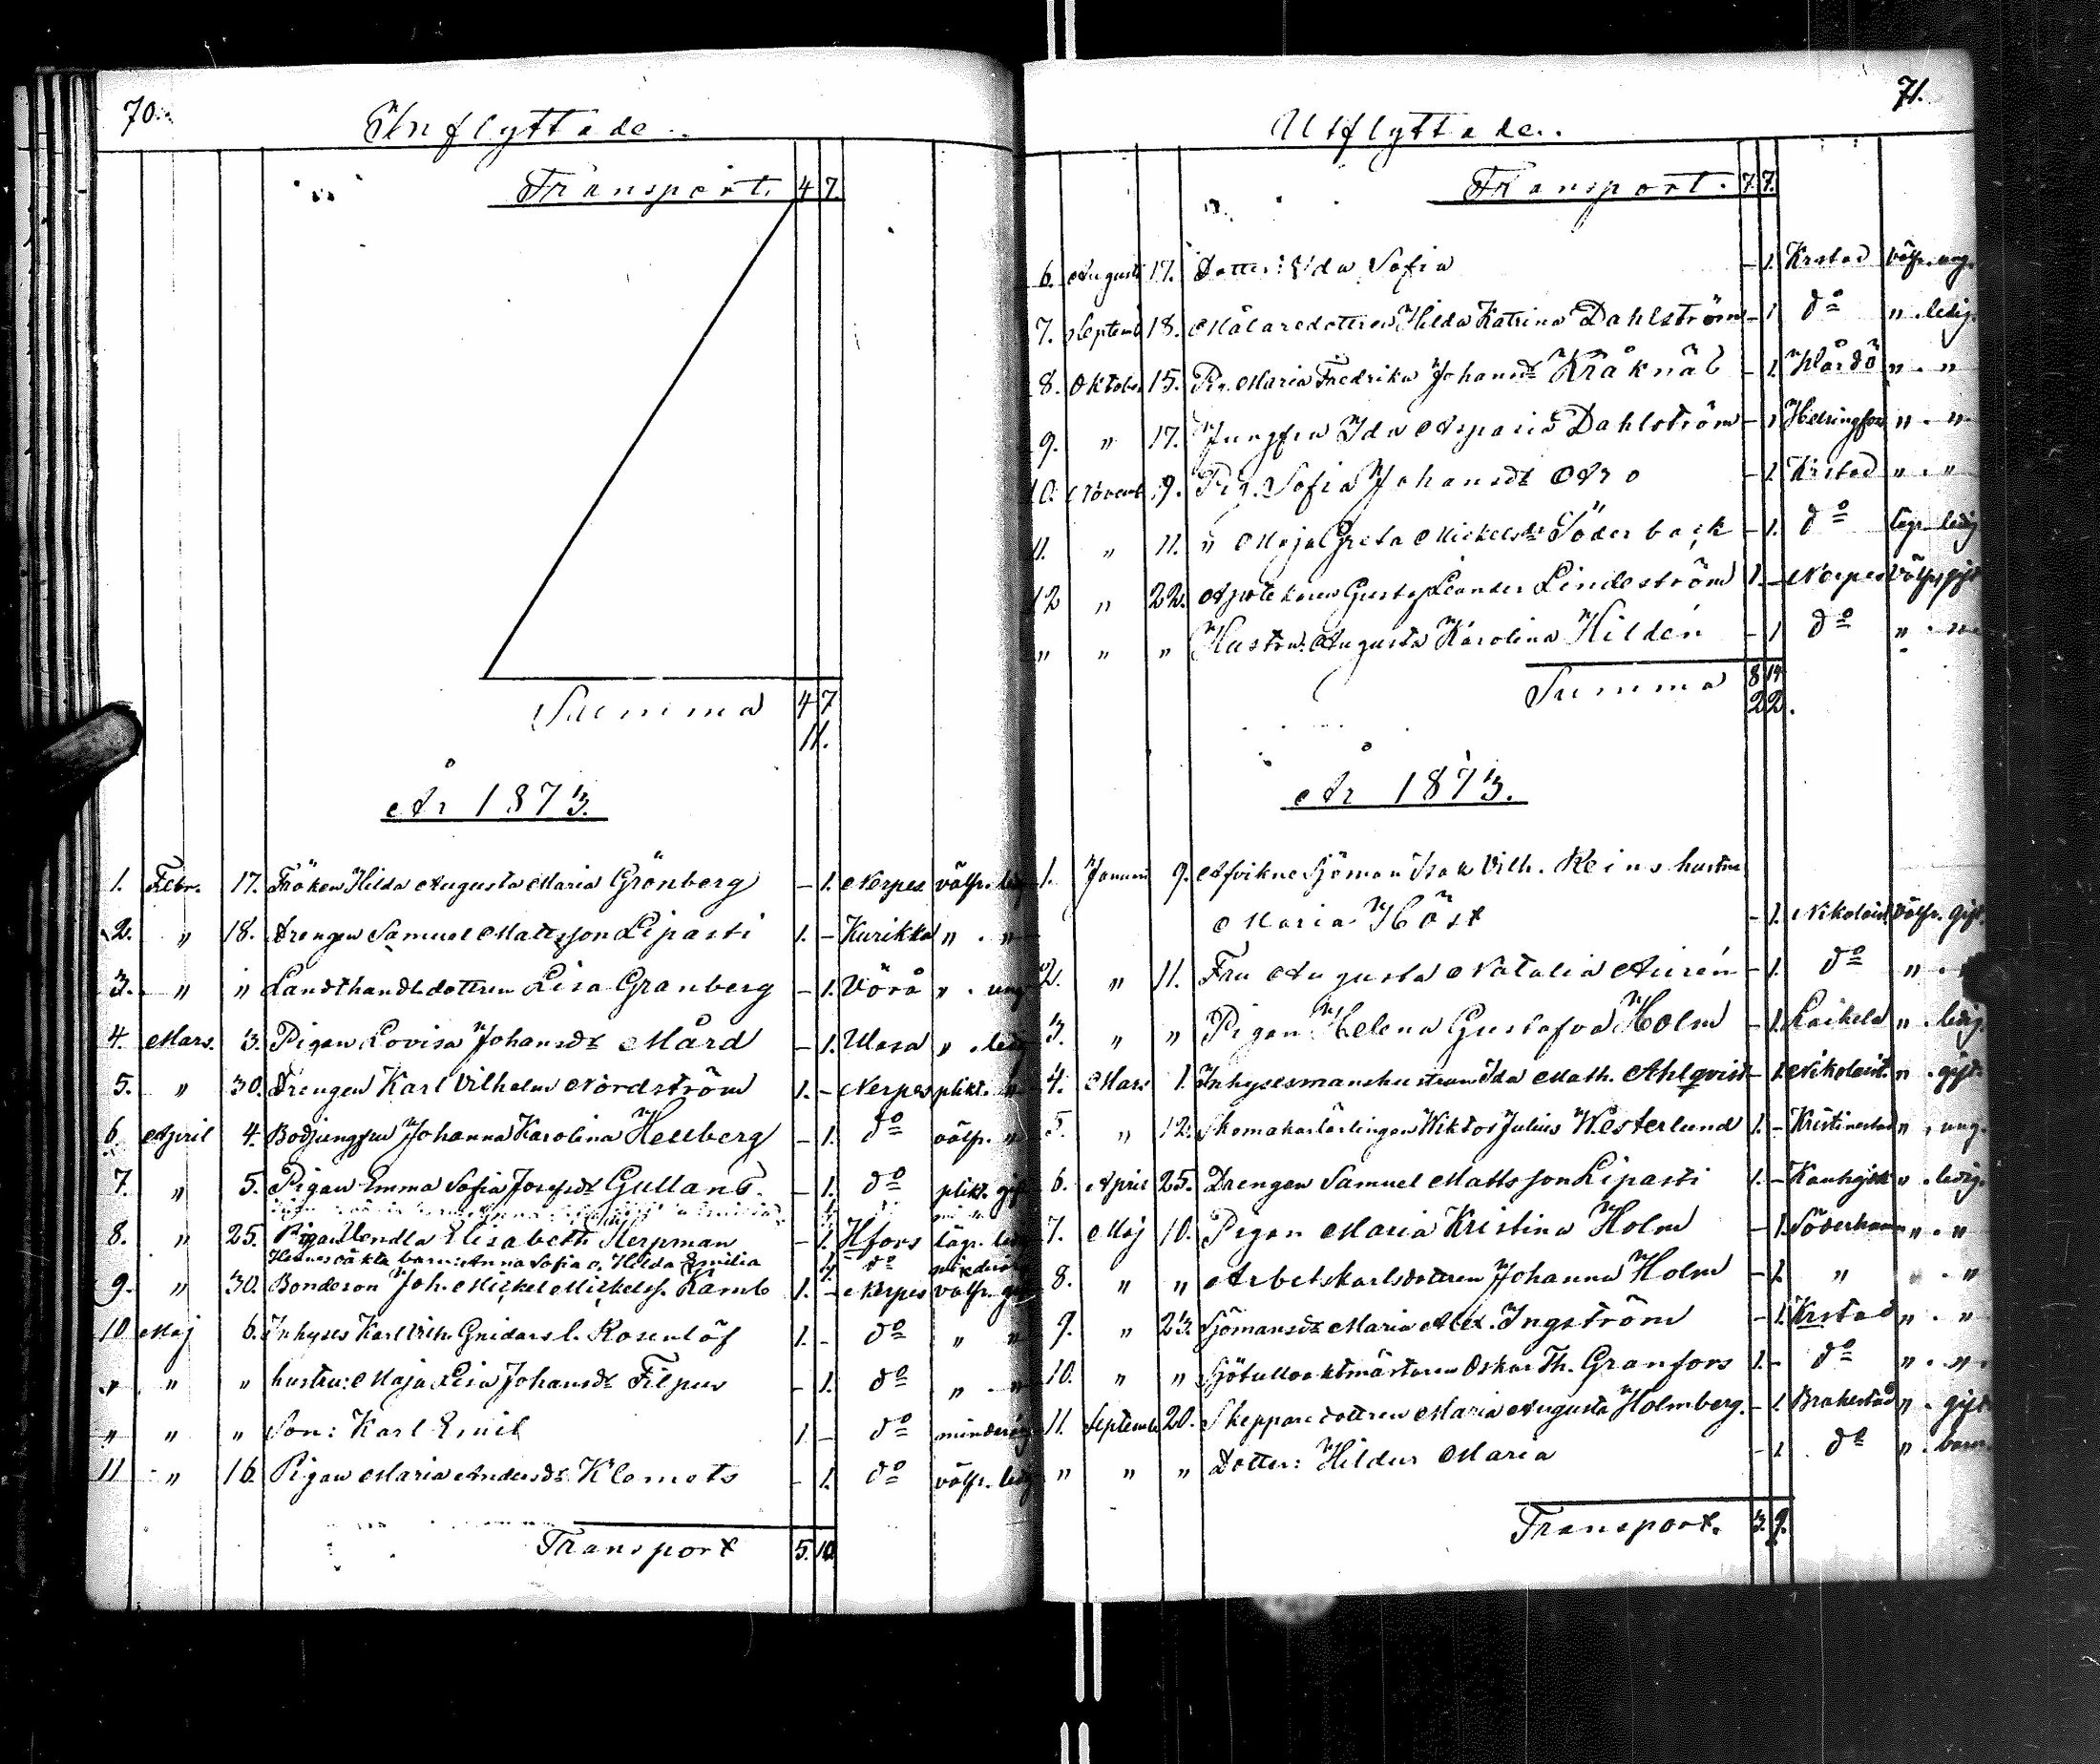 70.
Inflyttade.
Transport. 4 7.
Summa 4 7
11.
År 1873.
1. Febr. 17. Fröken Hilda Augusta Maria Grönberg – 1. Nerpes välfr. ledig
2. " 18. Drengen Samuel Mattsson Lipasti 1. – Kurikka " . "
3. " " Landthandl.dottren Lisa Granberg – 1. Vörå " . ung
4. Mars. 3. Pigan Lovisa Johansdr Mård – 1. Wasa " . ledig
5. " 30. Drengen Karl Vilhelm Nordström 1. – Nerpes plikt. "
6. April 4. Bodjungfru Johanna Karolina Hellberg – 1. do välfr. "
7. " 5. Pigan Emma Sofia Josefsdr Gullans. – 1. do plikt. gift
8. " 25. Pigan Vendla Elisabeth Herpman – 1. Hfors lägr. ledig
Hennes oäkta barn: Anna Sofia o. Hilda Emilia do minderåriga
9. " 30. Bonderon Joh. Mickel Mickelss. Ramb 1. – Nerpes välfr. gift
10 Maj 6. Inhyses Karl Vilh. Gnidarsl. Rosenlöf 1. – do " "
" " " hustru: Maja Lisa Johansdr Filpus – 1. do " . "
" " " Son: Karl Emil 1. – do minderårig
11 " 16. Pigan Maria Andersdr Klemets – 1. do välfr. ledig
Transport 5. 10
71.
Utflyttade.
Transport. 7. 7.
6. Augusti 17. Dotter: Ida Sofia – 1. Krstad välfr. ung.
7. Septemb 18. Målaredottren Hilda Katrina Dahlström – 1 do " . ledig.
8. Oktober 15. Pig. Maria Fredrika Johansdr Kråknäb – 1. Wårdö " . "
9. " 17. Jungfru Ida Aspasia Dahlström – 1 Helsingfors " . "
10. Novemb 9. Pig. Sofia Johansdr Aro – 1. Krstad " . "
11. " 11. " Maja Greta Mickelsdr Söderback – 1. do lägr. ledig
12 " 22. Apotekaren Gustaf Leander Lindeström 1. – Nerpes välfr. gift
" " " Hustru: Augusta Karolina Hildén – 1 do " . "
Summa 8 14
22.
År 1873.
1. Januari 9. Afvikne Sjöman Isak Vilh. Reins hustru
Maria Höst – 1. Nikolaist. välfr. gift.
2. " 11. Fru Augusta Natalia Aurén – 1. do " . "
3. " " Pigan Helena Gustafva Holm – 1. Laihela " . ledig.
4. Mars 1. Inhysesmanshustrun Ida Math. Ahlqvist – 1. Nikolaist. " . gift.
5. " 12. Skomakarlärlingen Wiktor Julius Westerlund 1. – Kristinestad " . ung.
6. April 25. Drengen Samuel Mattsson Lipasti 1. – Kauhajoki " . ledig.
7. Maj 10. Pigan Maria Kristina Holm – 1. Söderhamn " . "
8. " " Arbetskarlsdottren Johanna Holm – 1. " " . "
9. " 23. Sjömansdr Maria Alex. Ingström – 1. Krstad " . "
10. " " Sjötullvaktmästaren Oskar Th. Granfors 1. – do " . "
11. Septemb 20. Skepparedottren Maria Augusta Holmberg. – 1. Brahestad " . gift
" " " Dotter: Hildur Maria – 1 do " . barn.
Transport. 3. 9.